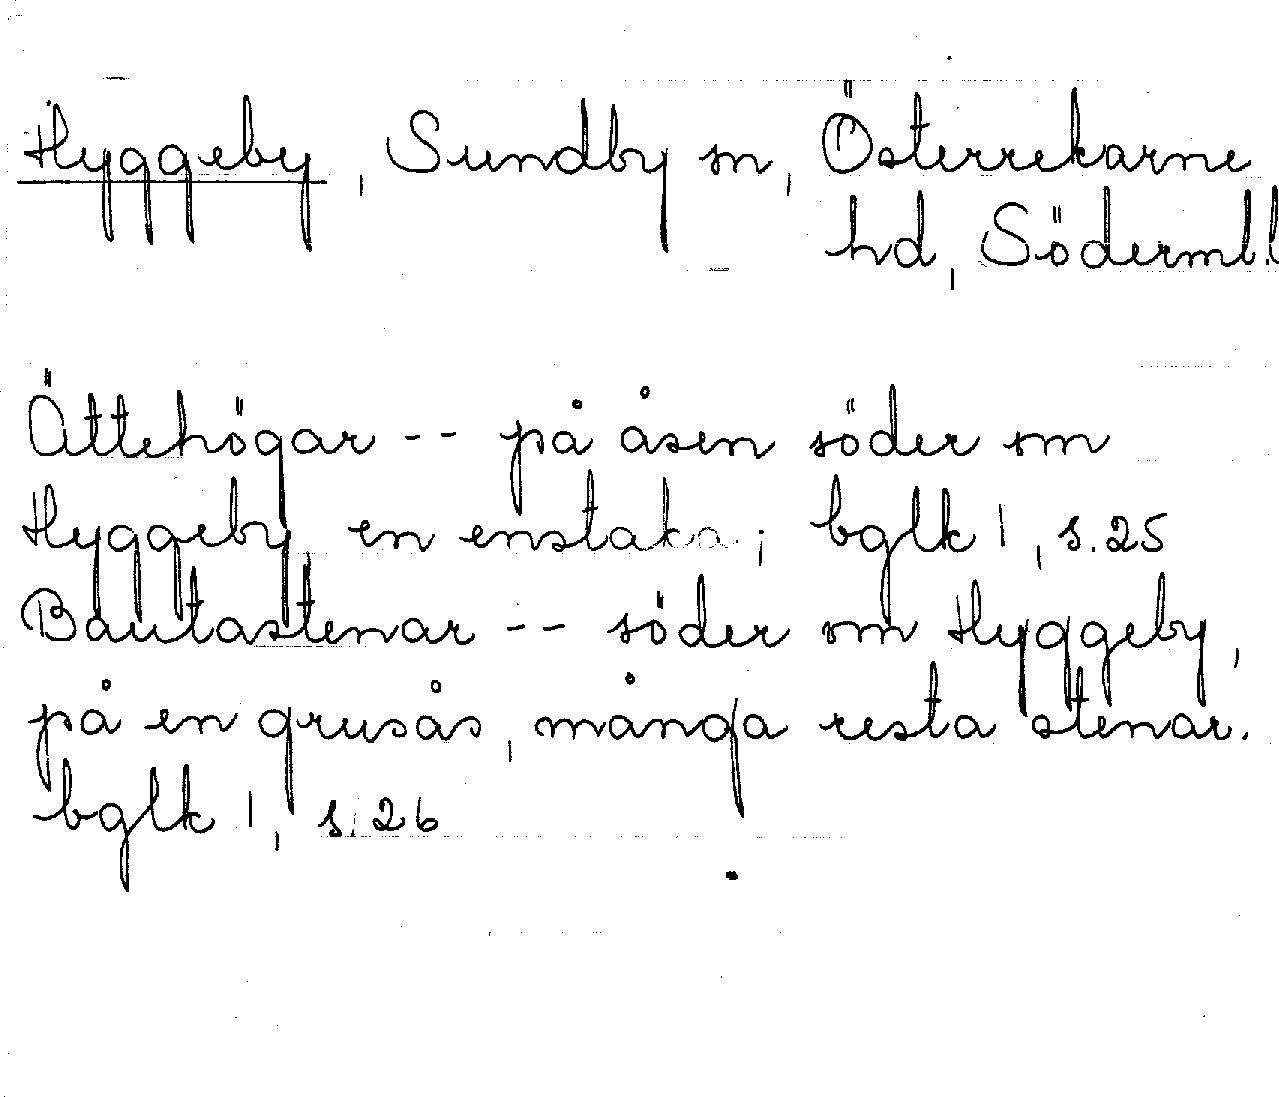 Hyggeby, Sundby sn, Österrekarne
hd, Söderml.
Ättehögar -- på åsen söder om
Hyggeby en enstaka; bglk 1, s. 25
Bautastenar -- söder om Hyggeby,
på en grusås, många resta stenar.
bglk 1, s. 26